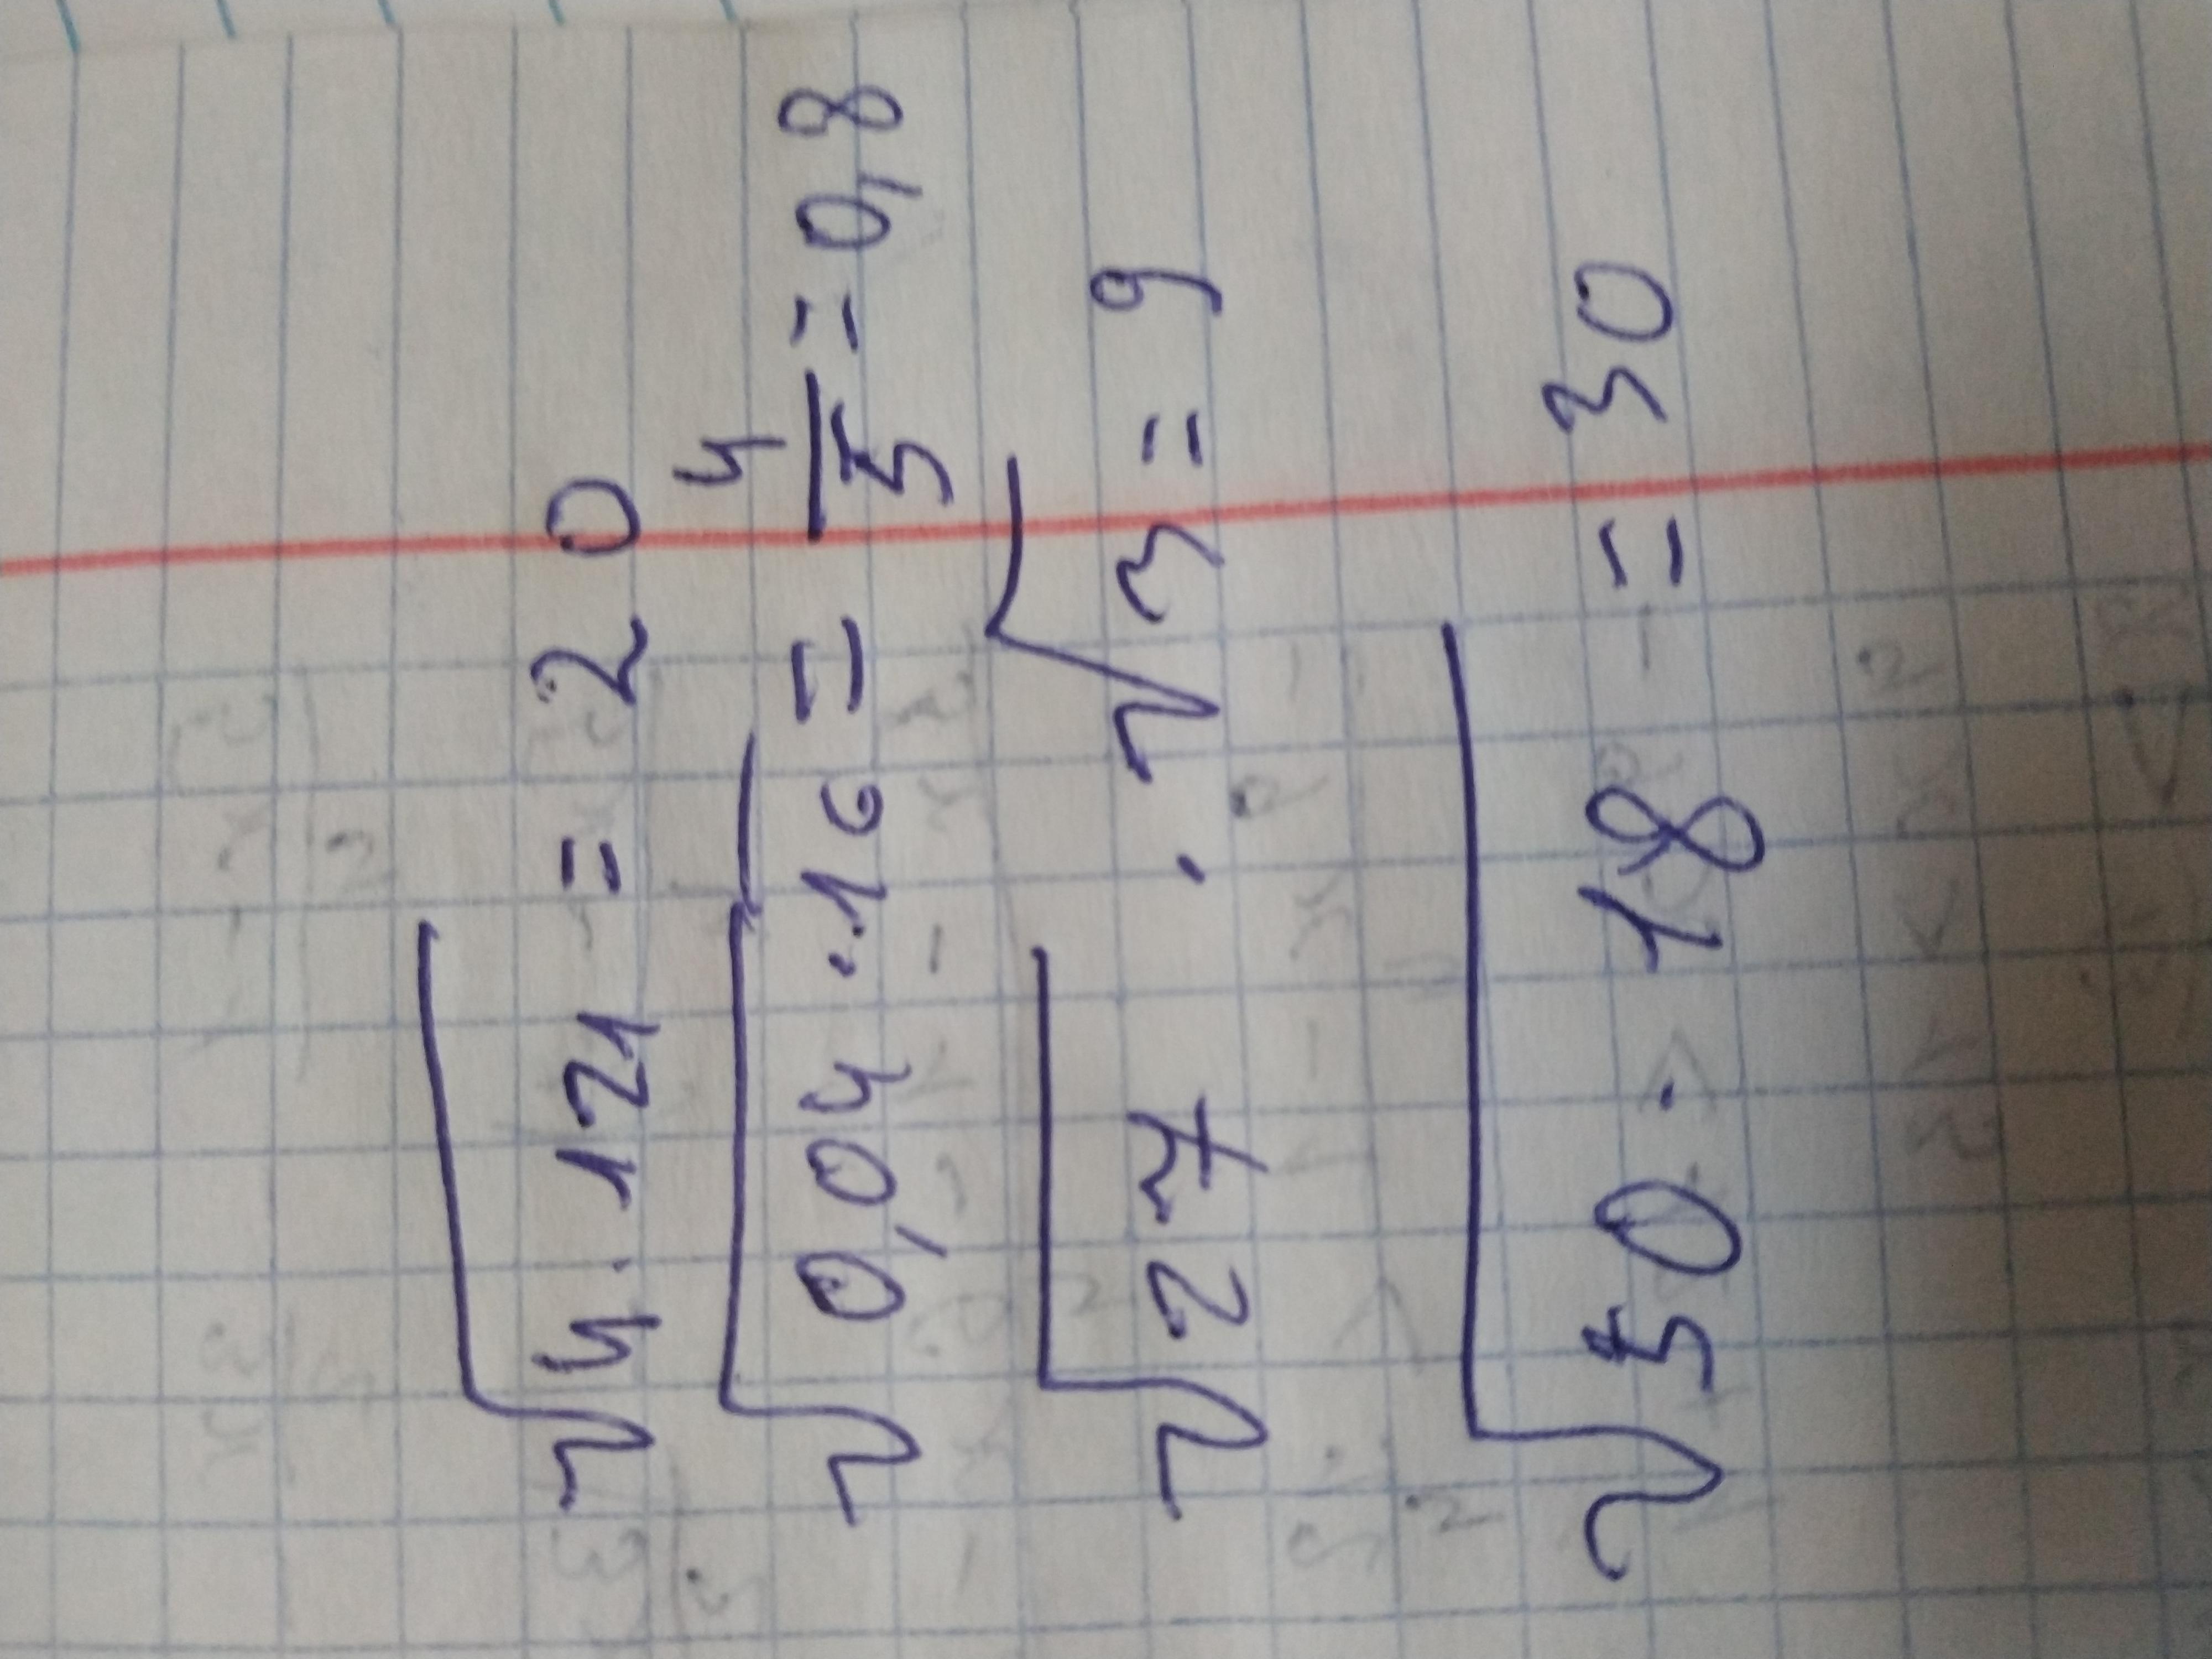 √4·121 = 20
√0,04·16 = 4/5 = 0,8
√27 · √3 = 9
√50·18 = 30